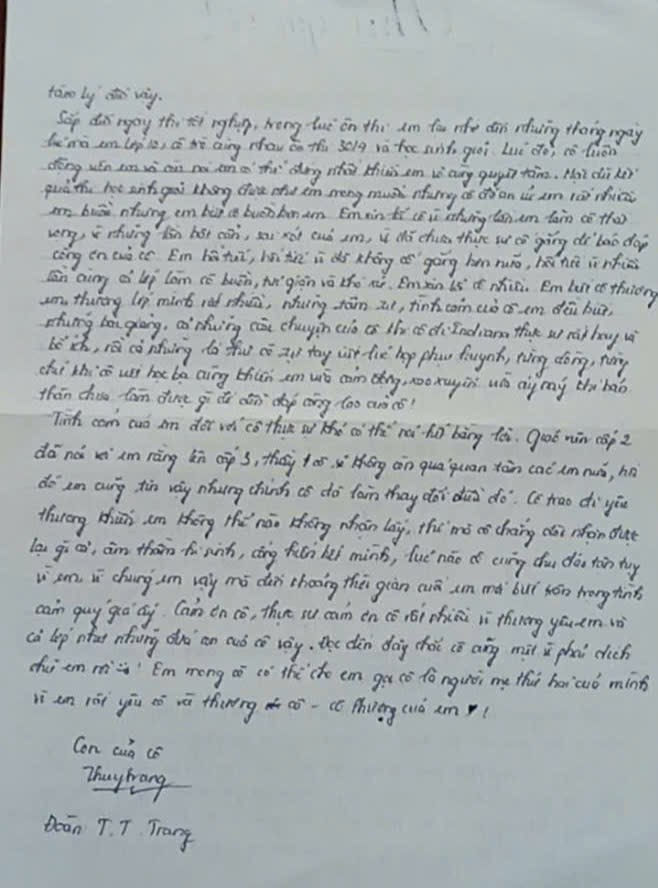 tâm lý đến vậy.
Sắp đến ngày thi tốt nghiệp, trong lúc ôn thi em lại nhớ đến những tháng ngày
khi mà em lớp 10, cô trò cùng nhau ôn thi 30/4 và học sinh giỏi. Lúc đó, cô luôn
động viên em và câu nói an ủi đúng nhất khiến em vô cùng quyết tâm. Mặc dù kết
quả thi học sinh giỏi không được như em mong muốn nhưng cô đã an ủi em rất nhiều
em buồn nhưng em biết cô buồn hơn em. Em xin lỗi cô vì những lần em làm cô thất
vọng, vì những lần bất cẩn, sai xót của em, vì đã chưa thực sự cố gắng để báo đáp
công ơn của cô. Em hối tiếc, hối tiếc vì đã không cố gắng hơn nữa, hối tiếc vì nhiều
lần cùng cả lớp làm cô buồn, tức giận và khó xử. Em xin lỗi cô nhiều. Em biết cô thương
em, thương lớp mình rất nhiều, những tâm sự, tình cảm của cô em đều biết,
những bài giảng, cả những câu chuyện của cô khi cô đi Indiana thực sự rất hay và
bổ ích, rồi cả những lá thư cô tự tay viết lúc họp phụ huynh, từng dòng, từng
chữ khi cô viết học bạ cũng khiến em vừa cảm động, xao xuyến vừa áy náy khi bản
thân chưa làm được gì để đền đáp công lao của cô!
Tình cảm của em đối với cô thực sự khó có thể nói hết bằng lời. GVCN năm cấp 2
đã nói với em rằng lên cấp 3, thầy cô sẽ không còn quá quan tâm các em nữa, hồi
đó em cũng tin vậy nhưng chính cô đã làm thay đổi điều đó. Cô trao đi yêu
thương khiến em không thể nào không nhận lấy, thế mà cô chẳng đòi nhận được
lại gì cả, âm thầm hi sinh, cống hiến hết mình, lúc nào cô cũng chu đáo tận tụy
vì em, vì chúng em vậy mà đến khoảng thời gian cuối em mới biết trân trọng tình
cảm quý giá ấy. Cảm ơn cô, thực sự cảm ơn cô rất nhiều vì thương yêu em và
cả lớp như những đứa con của cô vậy. Đọc đến đây chắc cô cũng mệt vì phải dịch
chữ em rồi :)! Em mong cô có thể cho em gọi cô là người mẹ thứ hai của mình
vì em rất yêu cô và thương cô - cô Phượng của em ♥!
Con của cô
Thuytrang
Đoàn T.T. Trang